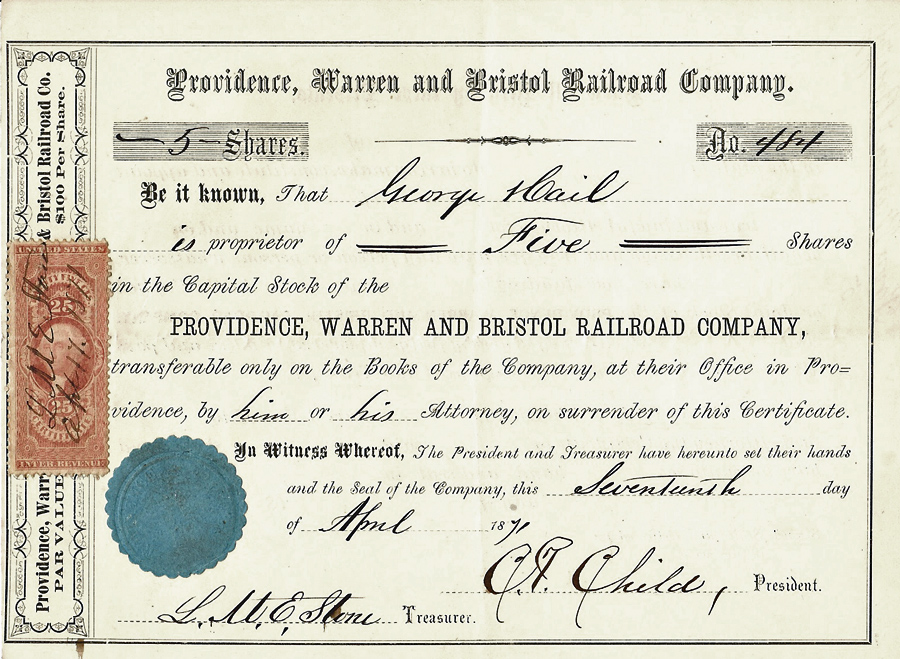 Providence, Warren and Bristol Railroad Company.
5 Shares.
No. 484
Be it known, That George Hail
is proprietor of Five Shares
in the Capital Stock of the
PROVIDENCE, WARREN AND BRISTOL RAILROAD COMPANY,
transferable only on the Books of the Company, at their Office in Pro=
vidence, by him or his Attorney, on surrender of this Certificate.
In Witness Whereof, The President and Treasurer have hereunto set their hands
and the Seal of the Company, this Seventeenth day
of April 1871
C. F. Child, President.
L. M. E. Stone Treasurer.
Providence, Warr & Bristol Railroad Co.
PAR VALUE $100 Per Share.
UNITED STATES
25
INTER REVENUE
L. M. E. Stone